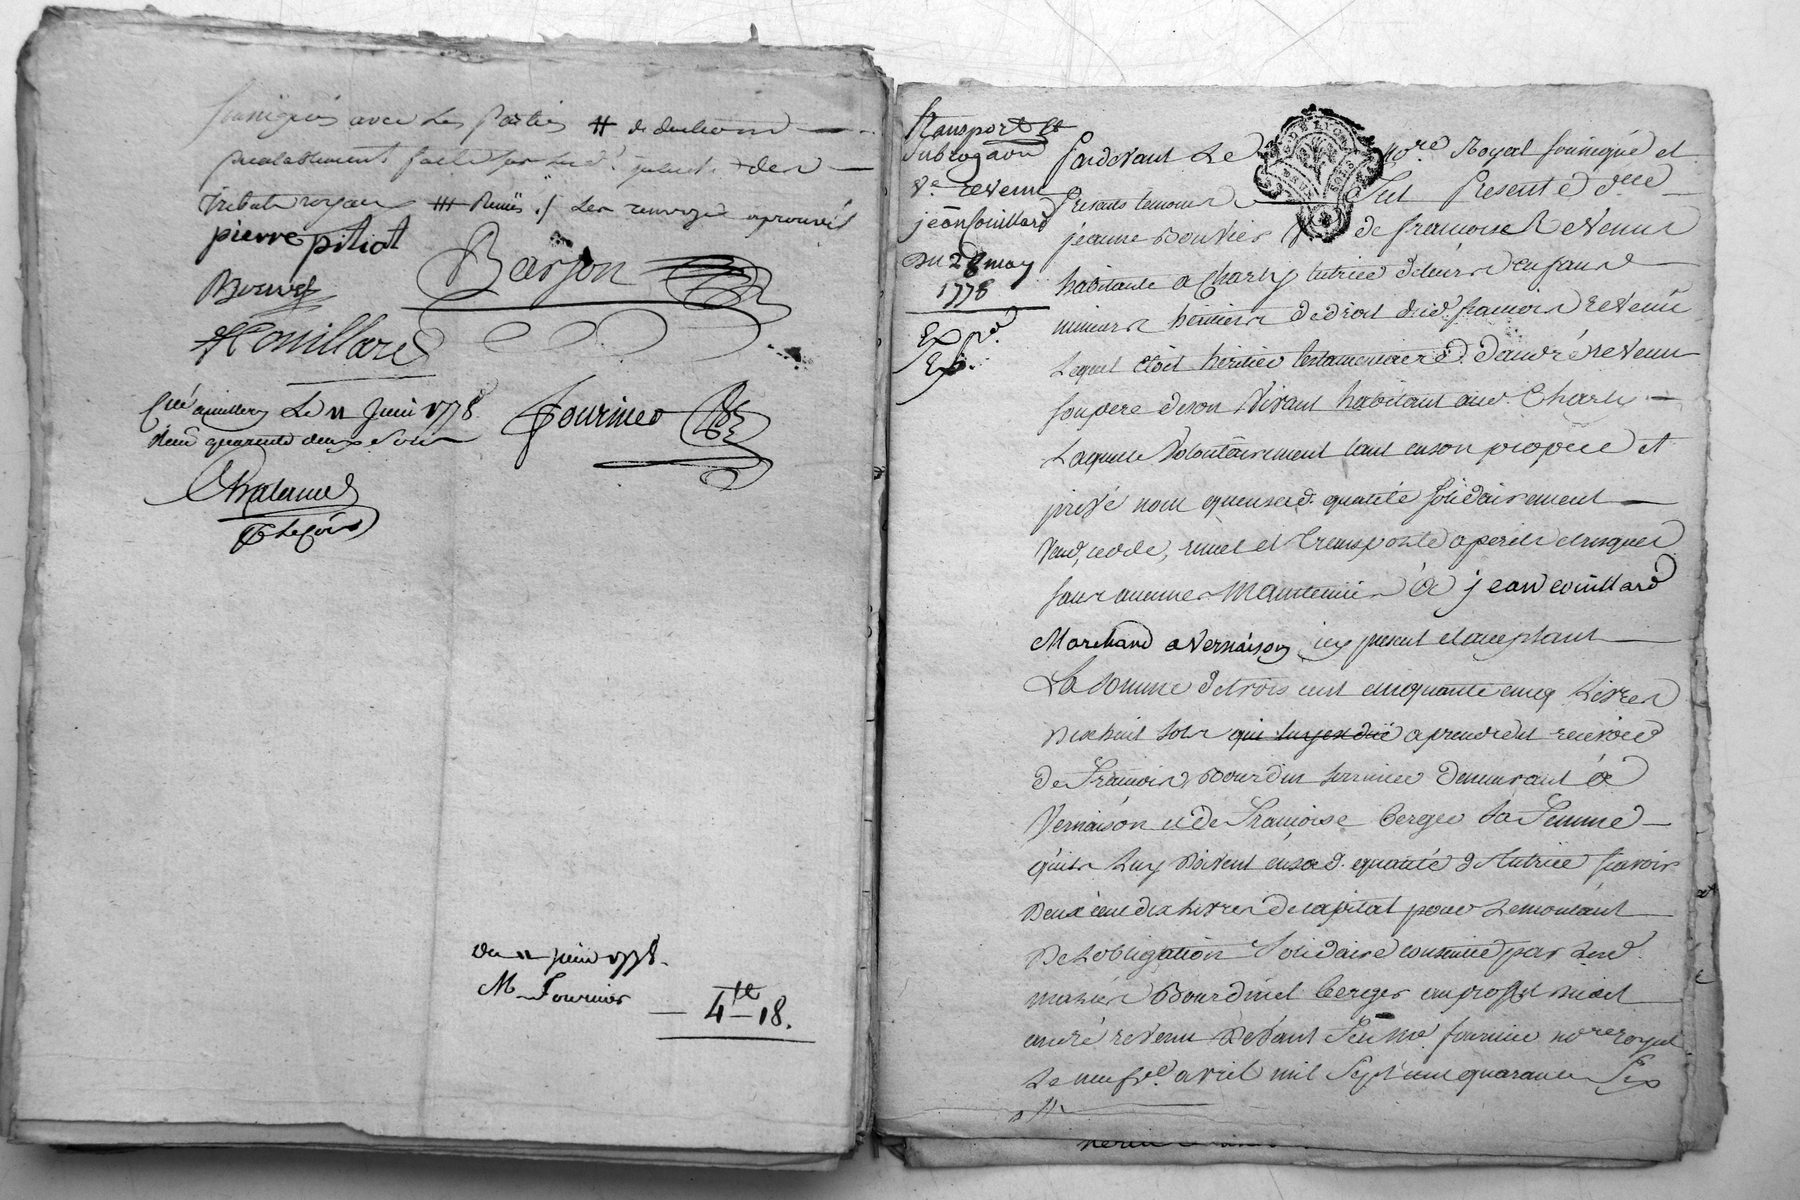 soussignés avec Les Parties # deductions
prealablement faite par
tributs royaux ## Remis ./ Les renvoys aprouvés
pierre pitiot
Barjon
Bouvet
JCouillard
Cllé a millery Le 11 Juin 1778
Reçu quarente deux sols
Fournier
Chalamel
Du 11 juin 1778.
M Fournier
4tt 18.
Transport et
Subrogaon
Ve revenu
jean Couillard
Du 28 may
1778
Expd.
Exp.
Pardevant Le nore Royal soussigné et
Presents temoins Fut Presente dlle
jeanne Bouvier Ve de francoise Revenu
habitante a Charly tutrice de leurs enfans
mineurs heritiers de droit dud. francois revenu
Lequel etoit heritier testamentaire d. d'andré revenu
son pere de son Vivant habitant aud Charly
Laquelle Volontairement tant en son propre et
privé nom qu'en sad. qualité solidairement
Vend, cede, remet et transporte a perils et risques
sans aucune Maintenue à jean couillard
Marchand a Vernaison icy present et acceptant
La somme de trois cent cinquante cinq Livres
dix huit sols qui luy est duë a prendre et recevoir
de Francois Bourdin demeurant à
Vernaison et de Francoise berger sa Femme
qu'ils Luy doivent en sad. qualité de tutrice savoir
Deux cent dix Livres de capital pour Le montant
De Lobligation Solidaire consentie par Lesd.
mariés Bourdin et berger au proffit dudit
andré revenu Devant feu Me fournier nore royal
Le neuf avril mil Sept cent quarante Six